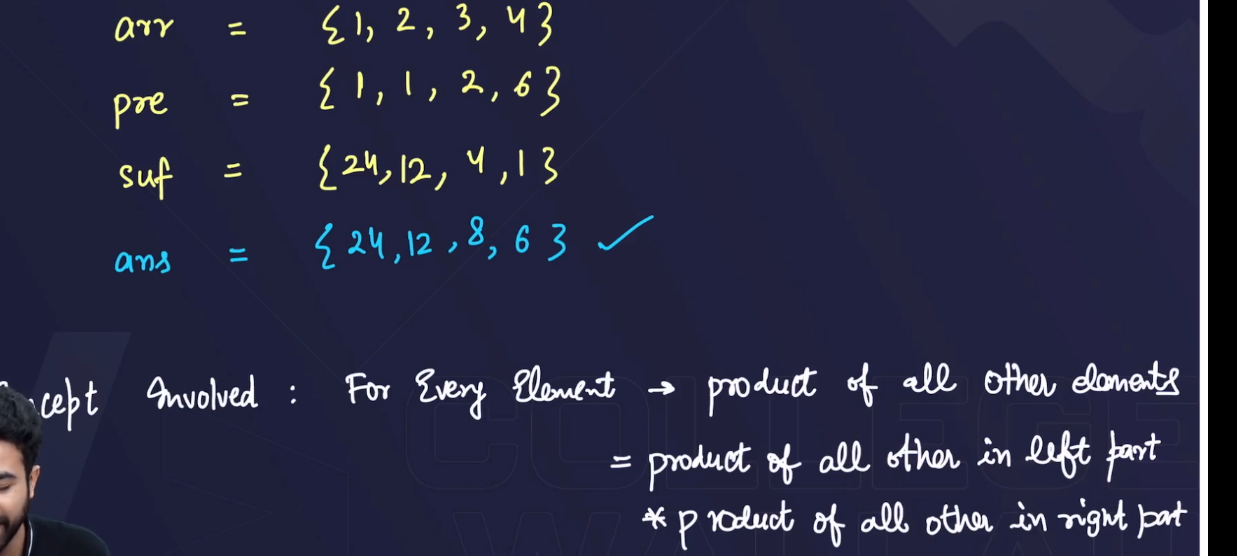 arr = {1, 2, 3, 4}
pre = {1, 1, 2, 6}
suf = {24, 12, 4, 1}
ans = {24, 12, 8, 6} ✓
cept Involved : For Every Element → product of all other elements
= product of all other in left part
* product of all other in right part
COLLEGE